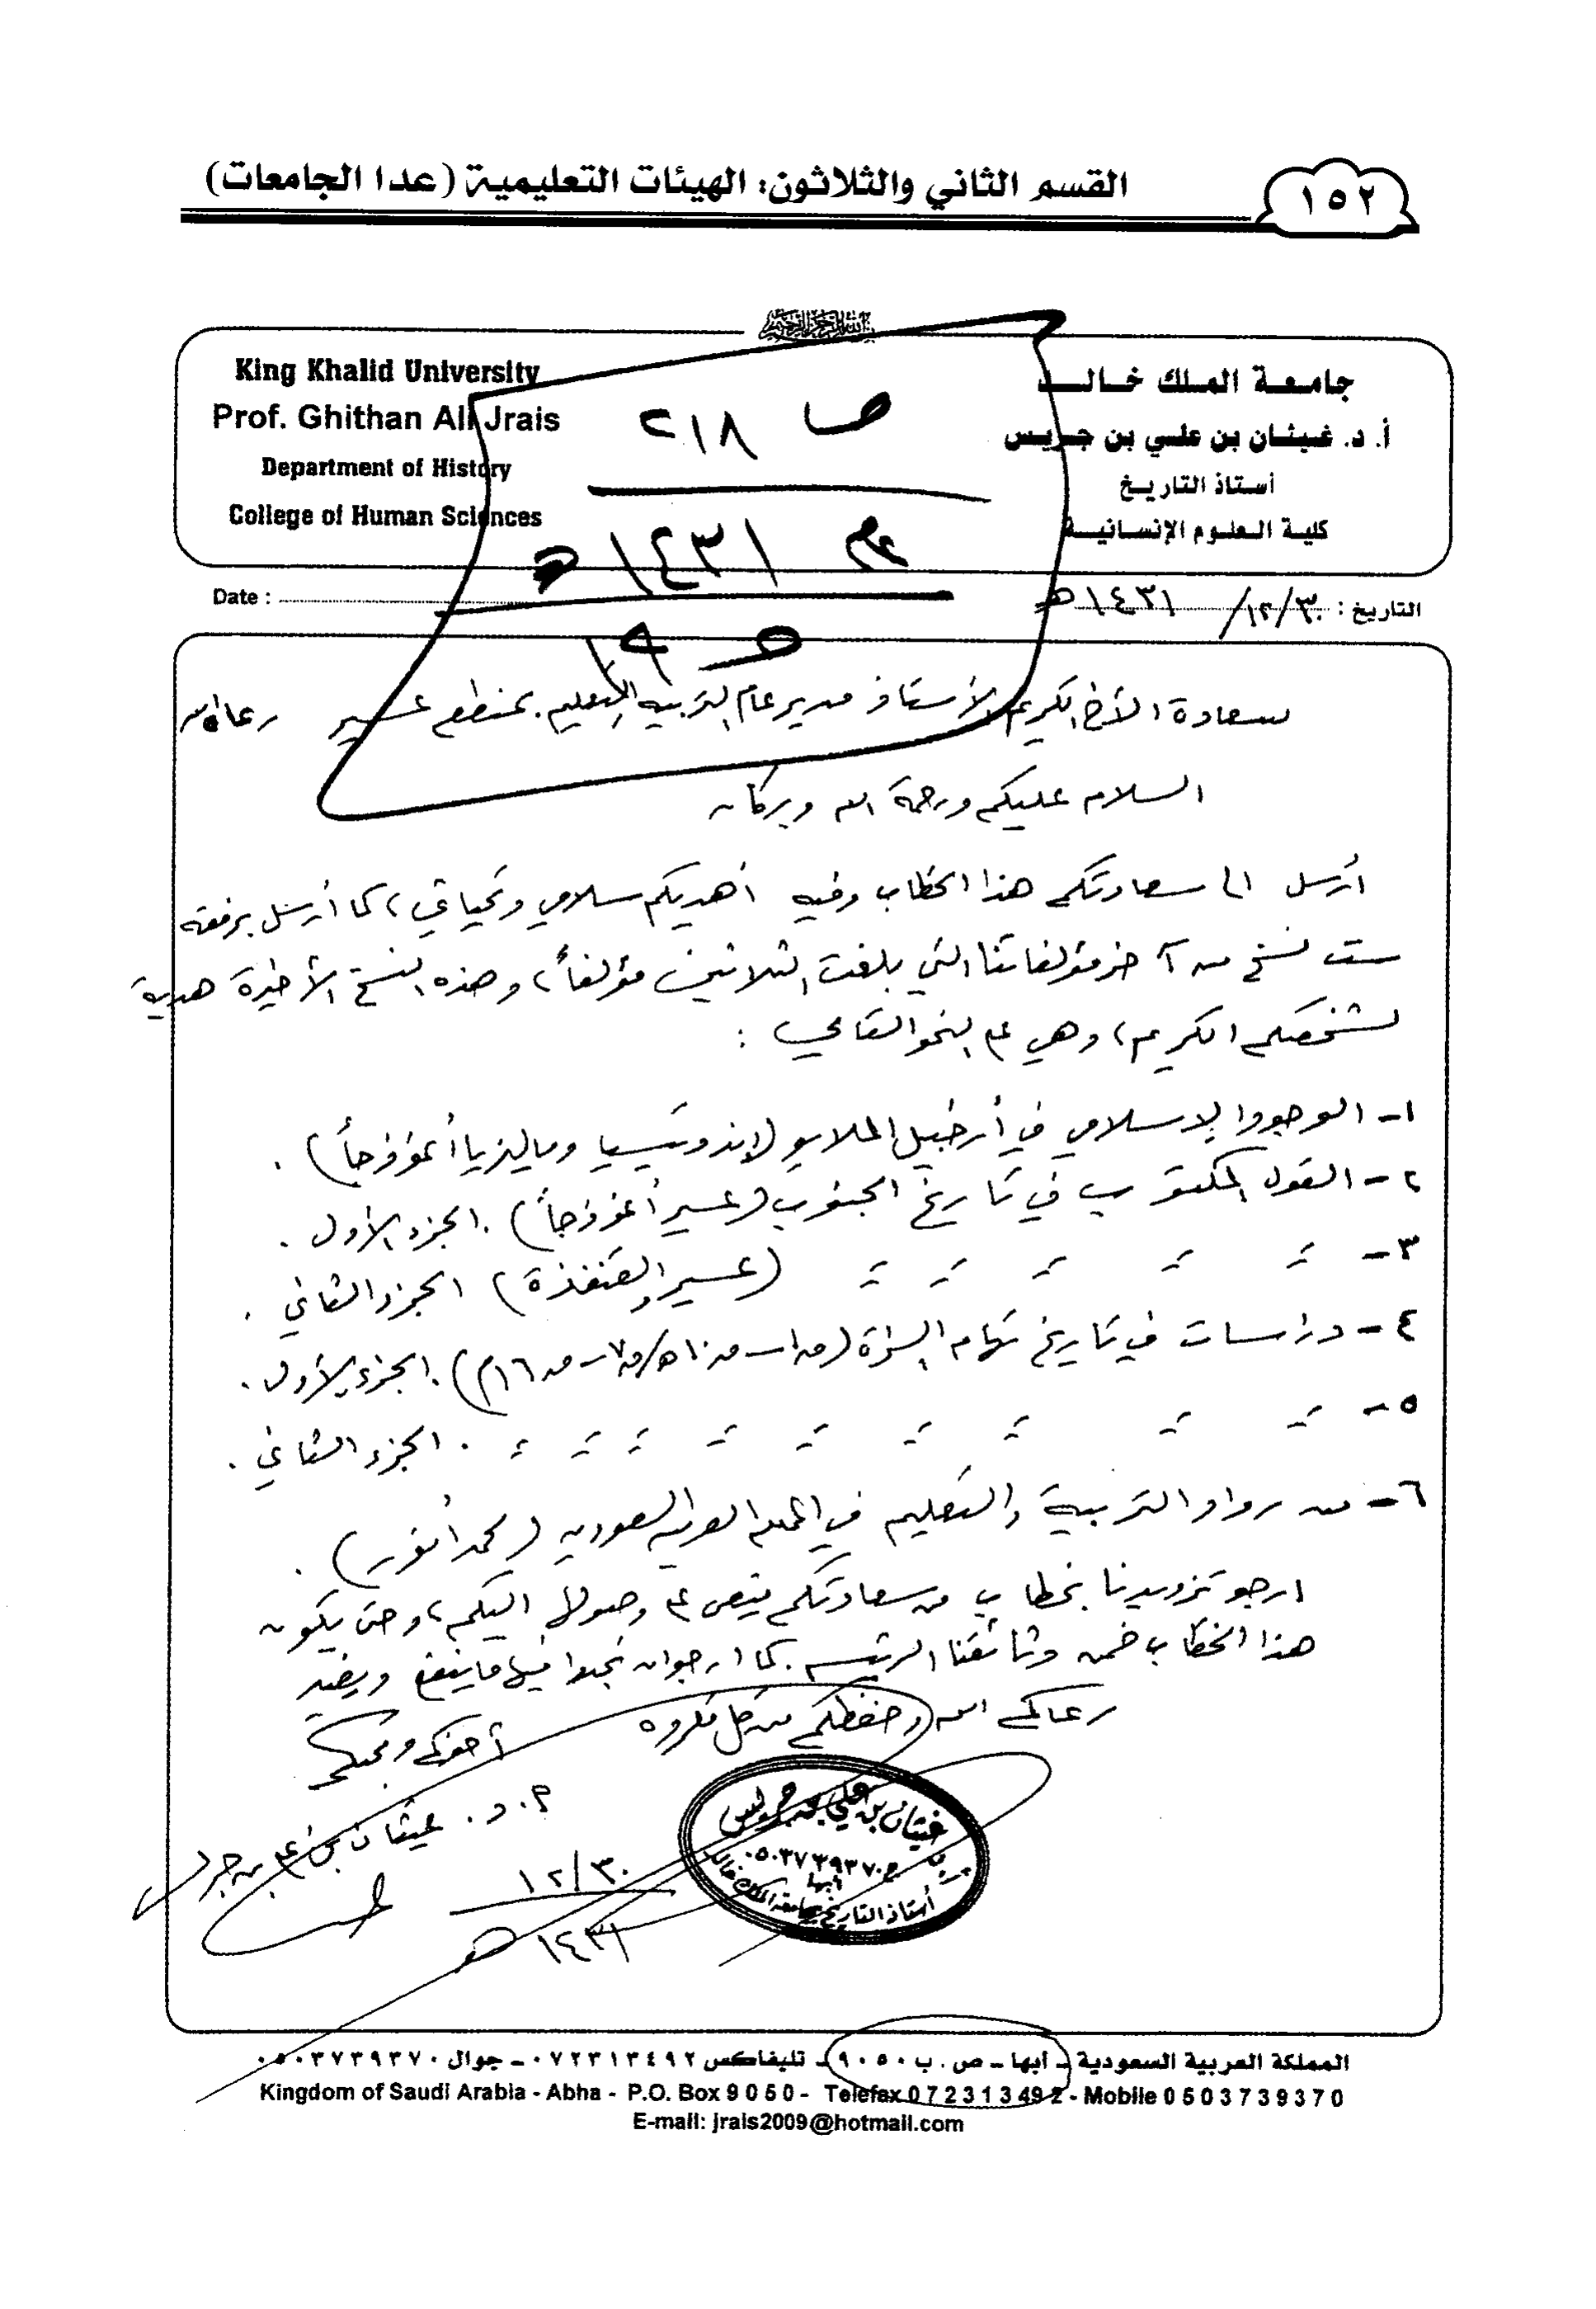 ١٥٢
القسم الثاني والثلاثون: الهيئات التعليمية (عدا الجامعات)
جامعة الملك خالد
أ. د. غيثان بن علي بن جريس
أستاذ التاريخ
كلية العلوم الإنسانية
King Khalid University
Prof. Ghithan Ali Jrais
Department of History
College of Human Sciences
ص ٢١٨
عام ١٤٣١هـ
ص ١٩
التاريخ : ٣٠/١٢/١٤٣١هـ
Date :
سعادة الأخ الكريم الأستاذ مدير عام التربية والتعليم بمنطقة عسير رعاه الله
السلام عليكم ورحمة الله وبركاته
أرسل إلى سعادتكم هذا الخطاب وفيه أهديكم سلامي وتحياتي، كما أرسل برفقه
ست نسخ من آخر مؤلفاتنا التي بلغت الثلاثين مؤلفاً، وهذه النسخ الأخيرة هدية
لشخصكم الكريم، وهي على النحو التالي :
١- الوجود الإسلامي في أرخبيل الملايو (إندونيسيا وماليزيا أنموذجاً) .
٢- القول المكتوب في تاريخ الجنوب (عسير أنموذجاً) . الجزء الأول .
٣- = = = = = (عسير والقنفذة) الجزء الثاني .
٤- دراسات في تاريخ تهامة السراة (من ق١-ق١٠هـ/ق٧-ق١٦م) . الجزء الأول .
٥- = = = = = = = = = . الجزء الثاني .
٦- من رواد التربية والتعليم في المملكة العربية السعودية (محمد أنور) .
ارجو تزويدنا بخطاب من سعادتكم ينص على وصولها إليكم، وحتى يكون
هذا الخطاب ضمن وثائقنا الرئيسة. كما ارجو ان تجدوا فيها ما ينفع ويفيد
رعاكم الله وحفظكم من كل مكروه
أخوكم ومحبكم
أ. د. غيثان بن علي بن جريس
٣٠/١٢
١٤٣١هـ
غيثان بن علي بن جريس
ج ٠٥٠٣٧٣٩٣٧٠
أبها
أستاذ التاريخ بجامعة الملك خالد
المملكة العربية السعودية - أبها - ص. ب ٩٠٥٠ - تليفاكس ٠٧٢٣١٣٤٩٢ - جوال ٠٥٠٣٧٣٩٣٧٠
Kingdom of Saudi Arabia - Abha - P.O. Box 9050 - Telefax 072313492 - Mobile 0503739370
E-mail: jrais2009@hotmail.com